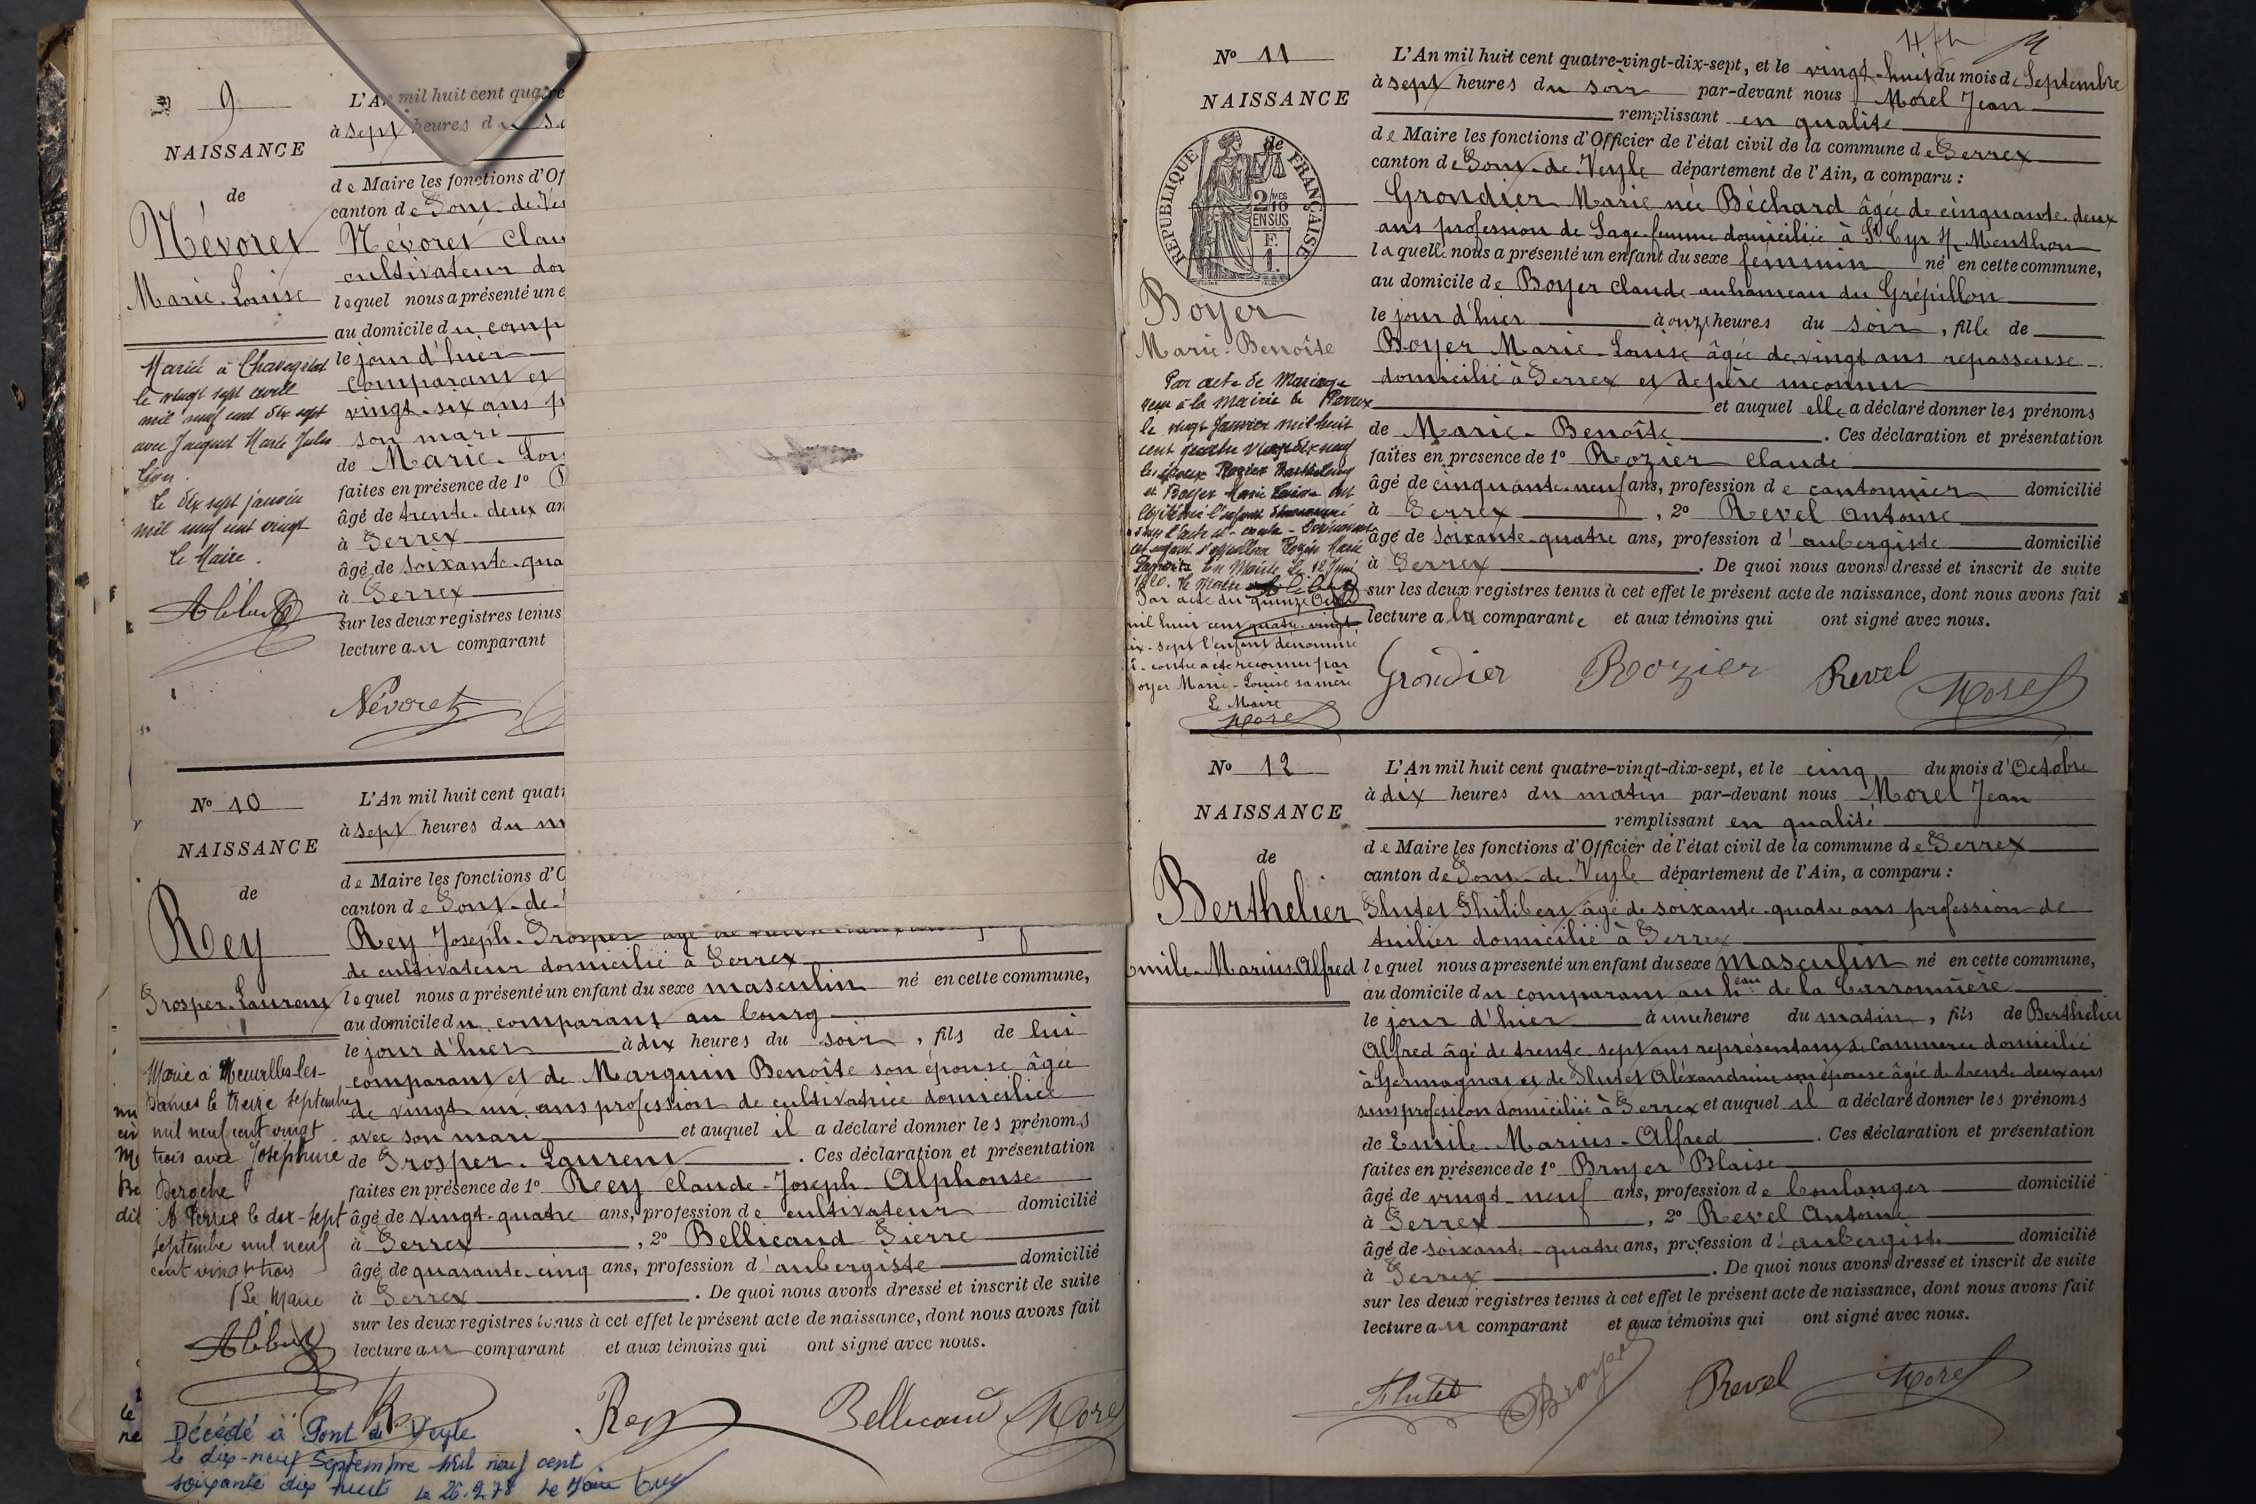 9
NAISSANCE
de
Névoret
Marie-Louise
Marié à
le vingt sept avril
mil neuf cent dix sept
avec Jacquet Marie Jules
Le dix sept janvier
mil neuf cent vingt
Le Maire.
L'An mil huit cent quatre
à sept heures du
de Maire les fonctions d'Of
canton de Pont-de-Ve
Névoret Clau
cultivateur do
lequel nous a présenté un e
au domicile du comp
le jour d'hier
comparant et
vingt-six ans p
son mari
de Marie-Lou
faites en présence de 1º
âgé de trente-deux an
à Perrex
âgé de soixante-qua
à Perrex
sur les deux registres tenus
lecture au comparant
Névoret
Nº 10
NAISSANCE
de
Rey
Prosper-Laurent
Marié à Neuville-les-
Dames le treize septembre
mil neuf cent vingt
trois avec Joséphine
Deroche
A Perrex le dix-sept
septembre mil neuf
cent vingt trois
Le Maire
L'An mil huit cent quat
à sept heures du m
de Maire les fonctions d'O
canton de Pont-de-
Rey Joseph-Prosper âgé de
de cultivateur domicilié à Perrex
lequel nous a présenté un enfant du sexe masculin né en cette commune,
au domicile du comparant au bourg
le jour d'hier à dix heures du soir, fils de lui
comparant et de Marguin Benoîte son épouse âgée
de vingt un ans profession de cultivatrice domiciliée
avec son mari et auquel il a déclaré donner les prénoms
de Prosper-Laurent. Ces déclaration et présentation
faites en présence de 1º Rey Claude-Joseph Alphonse
âgé de vingt-quatre ans, profession de cultivateur domicilié
à Perrex, 2º Bellicand Pierre
âgé de quarante-cinq ans, profession d'aubergiste domicilié
à Perrex. De quoi nous avons dressé et inscrit de suite
sur les deux registres tenus à cet effet le présent acte de naissance, dont nous avons fait
lecture au comparant et aux témoins qui ont signé avec nous.
Rey Bellicand Morel
Décédé à Pont de Veyle
le dix-neuf Septembre mil neuf cent
soixante dix huit le 26.9.78 Le Maire
Nº 11
NAISSANCE
de
RÉPUBLIQUE FRANÇAISE
2/10 MES
EN SUS
F.
1.
Boyer
Marie-Benoîte
Par acte de Mariage
reçu à la mairie de Perrex
le vingt Janvier mil huit
cent quatre vingt dix neuf
les époux Rozier Barthelemy
et Boyer Marie Louise ont
légitimé l'enfant dénommé
dans l'acte ci-contre
Par acte du quinze Oct
mil huit cent quatre-vingt
dix-sept l'enfant dénommé
ci-contre a été reconnu par
Boyer Marie-Louise sa mère
Le Maire
Morel
L'An mil huit cent quatre-vingt-dix-sept, et le vingt-huit du mois de Septembre
à sept heures du soir par-devant nous Morel Jean
remplissant en qualité
de Maire les fonctions d'Officier de l'état civil de la commune de Perrex
canton de Pont-de-Veyle département de l'Ain, a comparu :
Grondier Marie née Béchard âgée de cinquante-deux
ans profession de Sage-femme domiciliée à St Cyr s/ Menthon
laquelle nous a présenté un enfant du sexe féminin né en cette commune,
au domicile de Boyer Claude au hameau du Grépillon
le jour d'hier à onze heures du soir, fille de
Boyer Marie-Louise âgée de vingt ans repasseuse
domiciliée à Perrex et de père inconnu
et auquel elle a déclaré donner les prénoms
de Marie-Benoîte. Ces déclaration et présentation
faites en présence de 1º Rozier Claude
âgé de cinquante-neuf ans, profession de cantonnier domicilié
à Perrex, 2º Revel Antoine
âgé de soixante-quatre ans, profession d'aubergiste domicilié
à Perrex. De quoi nous avons dressé et inscrit de suite
sur les deux registres tenus à cet effet le présent acte de naissance, dont nous avons fait
lecture a la comparante et aux témoins qui ont signé avec nous.
Grondier Rozier Revel Morel
Nº 12
NAISSANCE
de
Berthelier
Emile-Marius-Alfred
L'An mil huit cent quatre-vingt-dix-sept, et le cinq du mois d'Octobre
à dix heures du matin par-devant nous Morel Jean
remplissant en qualité
de Maire les fonctions d'Officier de l'état civil de la commune de Perrex
canton de Pont-de-Veyle département de l'Ain, a comparu :
Flutet Philibert âgé de soixante-quatre ans profession de
tuilier domicilié à Perrex
lequel nous a présenté un enfant du sexe masculin né en cette commune,
au domicile du comparant au heau de la Carronnière
le jour d'hier à une heure du matin, fils de Berthelier
Alfred âgé de trente-sept ans représentant de Commerce domicilié
à Germagnat et de Flutet Aléxandrine son épouse âgée de trente-deux ans
sans profession domiciliée à Perrex et auquel il a déclaré donner les prénoms
de Emile-Marius-Alfred. Ces déclaration et présentation
faites en présence de 1º Broyer Blaise
âgé de vingt-neuf ans, profession de boulanger domicilié
à Perrex, 2º Revel Antoine
âgé de soixante-quatre ans, profession d'aubergiste domicilié
à Perrex. De quoi nous avons dressé et inscrit de suite
sur les deux registres tenus à cet effet le présent acte de naissance, dont nous avons fait
lecture au comparant et aux témoins qui ont signé avec nous.
Flutet Broyer Revel Morel